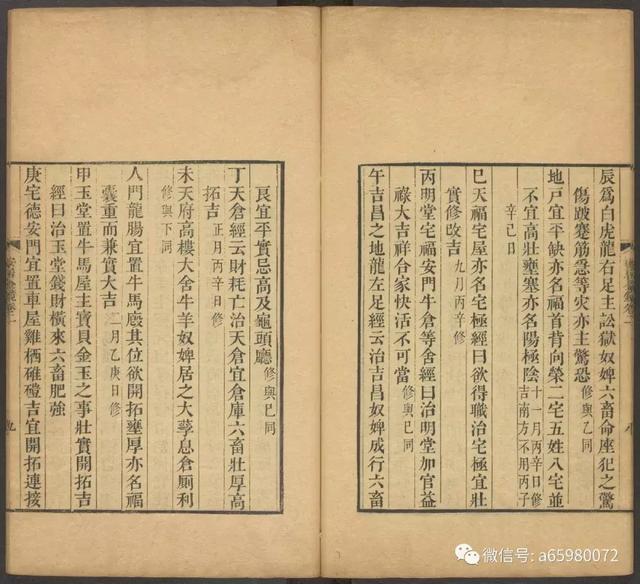 辰為白虎龍右足主訟獄奴婢六畜命座犯之驚
傷跛蹇筋急等灾亦主驚恐修與乙同
地戸宜平缺亦名福首背向榮二宅五姓八宅並
不宜高壯壅塞亦名陽極陰十一月丙辛日修吉南方不用丙子
辛巳日
巳天福宅屋亦名宅極經曰欲得職治宅極宜壯
實修改吉九月丙辛日修
丙明堂宅福安門牛倉等舍經曰治明堂加官益
祿大吉祥合家快活不可當修與巳同
午吉昌之地龍左足經云治吉昌奴婢成行六畜
艮宜平實忌高及龜頭廳修與巳同
丁天倉經云財耗亡治天倉宜倉庫六畜壯厚高
拓吉正月丙辛日修
未天府高樓大舍牛羊奴婢居之大孳息倉厠利
修與下同
人門龍腸宜置牛馬廄其位欲開拓壅厚亦名福
囊重而兼實大吉二月乙庚日修
甲玉堂置牛馬屋主寶貝金玉之事壯實開拓吉
經曰治玉堂錢財橫來六畜肥強
庚宅德安門宜置車屋雞栖碓磑吉宜開拓連接
九
微信号: a65980072